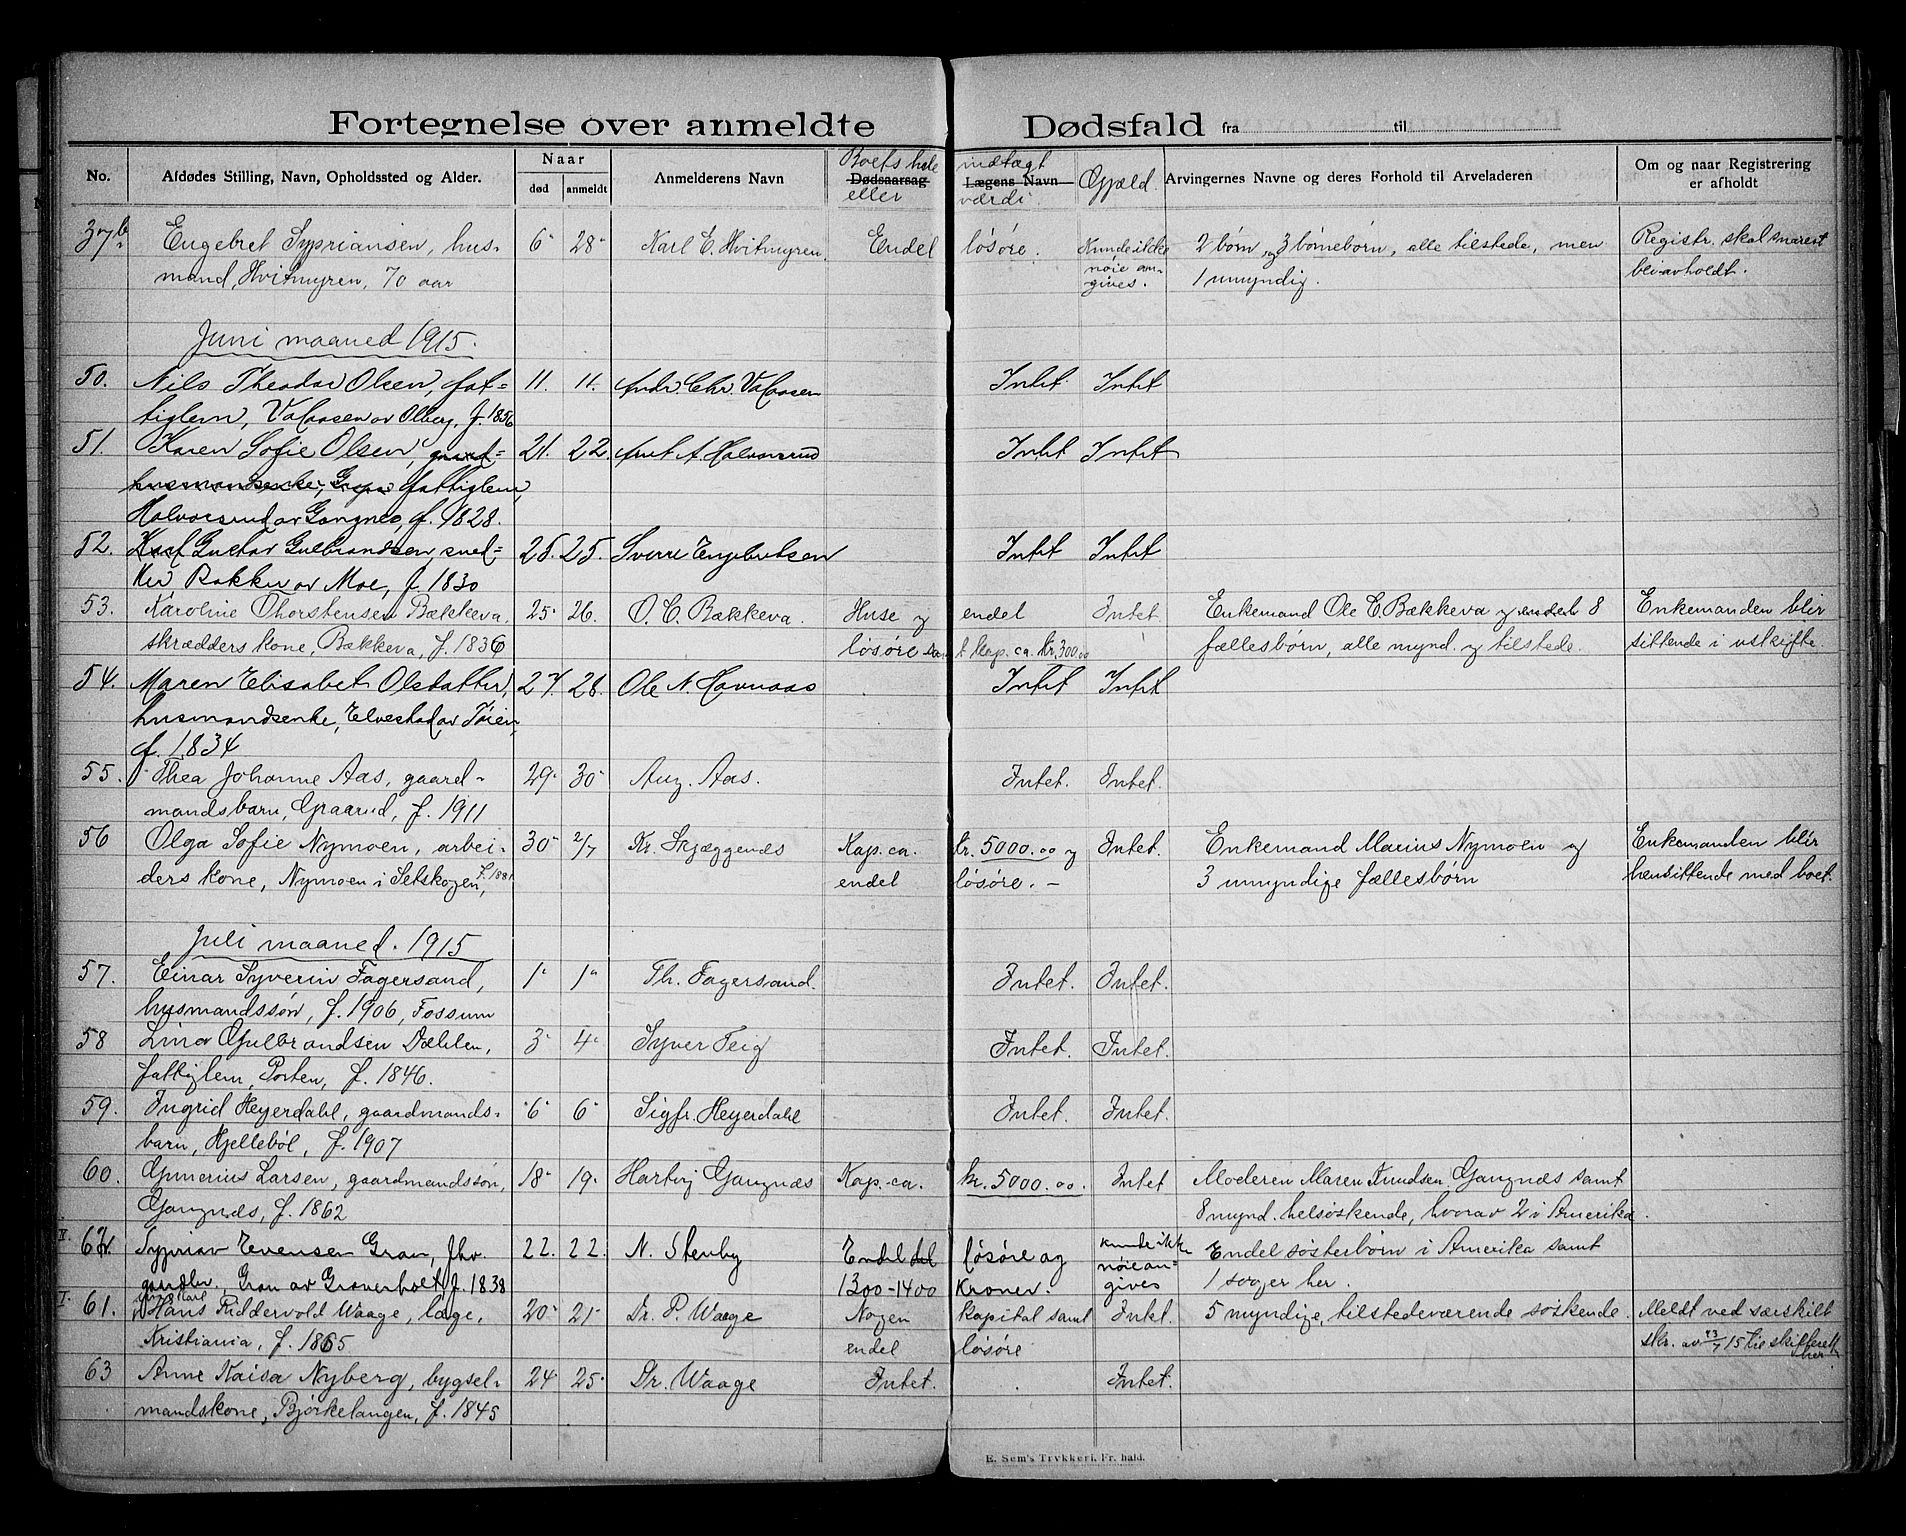 Fortegnelse over anmeldte Dødsfald fra til
No. Afdødes Stilling, Navn, Opholdssted og Alder. Naar død anmeldt Anmelderens Navn Boets hele Dødsaarsag eller indtægt Lægens Navn værdi. Gjæld. Arvingernes Navne og deres Forhold til Arveladeren Om og naar Registrering er afholdt
37b. Engebret Sypriansen, hus- 6 28 Karl E. Hvitmyren. Endel løsøre. Kunde ikke 2 børn og 3 børnebørn, alle tilstede, men Registr. skal snarest
mand, Hvitmyren, 70 aar nøie an- gives. 1 umyndig. bli avholdt.
Juni maaned 1915.
50. Nils Theodor Olsen, fat- 11. 11. Andr. Chr. Vallaasen Intet. Intet
tiglem, Vallaasen av Olberg, f. 1856
51. Karen Sofie Olsen, gaard- 21. 22. Anet A. Halvorsrud Intet Intet
husmandsenke, fattiglem,
Halvorsrud av Gangnes, f. 1828.
52. Karl Gustav Gulbrandsen, sned- 25. 25. Sverre Engebretsen Intet Intet
ker Bakke av Moe, f. 1830
53. Karoline Thorstensen Bækkeva, 25 26. O. C. Bækkeva. Huse og endel Intet. Enkemand Ole C. Bækkeva og endel 8 Enkemanden blir
skrædders kone, Bækkeva, f. 1836 løsøre samt kap. ca. kr. 300.00 fællesbørn, alle mynd. og tilstede. sittende i uskifte.
54. Maren Elisabet Olsdatter, 27 28. Ole N. Havnaas Intet Intet
husmandsenke, Elvestad av Tøien,
f. 1834
55. Thea Johanne Aas, gaard- 29 30 Aug. Aas. Intet. Intet.
mandsbarn, Graarud, f. 1911
56 Olga Sofie Nymoen, arbei- 30 2/7 Kr. Skjæggenæs Kap. ca. kr. 5000.00 og Intet. Enkemand Marius Nymoen og Enkemanden blir
ders kone, Nymoen i Setskogen, f. 1881 endel løsøre. – 3 umyndige fællesbørn hensittende med boet.
Juli maaned. 1915
57. Einar Syverin Fagersand, 1 1 Th. Fagersand. Intet. Intet.
husmandssøn, f. 1906, Fossum
58 Lina Gulbrandsen Dælilen, 3 4 Syver Teig Intet. Intet.
fattiglem, Porten, f. 1846.
59. Ingrid Heyerdahl, gaardmands- 6 6 Sigfr. Heyerdahl Intet. Intet.
barn, Hjellebøl, f. 1907
60. Gunerius Larsen, gaardmandssøn, 18 19. Hartvig Gangnæs Kap. ca. kr. 5000.00. Intet Moderen Maren Knudsen Gangnæs samt
Gangnæs, f. 1862 8 mynd. helsøskende, hvorav 2 i Amerika.
II. 62. Syprian Evensen Gran, fhv. 22. 22. N. Stenby Endel del løsøre og kunde ikke Endel søsterbørn i Amerika samt
gaardbr. Gran av Graverholt f. 1838 1300-1400 kroner. nøie an- gives 1 søger her.
I. 61. Hans Riddervold Waage, læge, 20 21 Dr. P. Waage Nogen kapital samt Intet. 5 myndige, tilstedeværende søskende. Meldt ved særskilt
Kristiania, f. 1865 endel løsøre skr. av 23/7 15 til skifterett her
63 Anne Kaisa Nyberg, bygsel- 24 25 Dr. Waage Intet. Intet.
mandskone, Bjørkelangen, f. 1845
E. Sem's Trykkeri, Fr.hald.